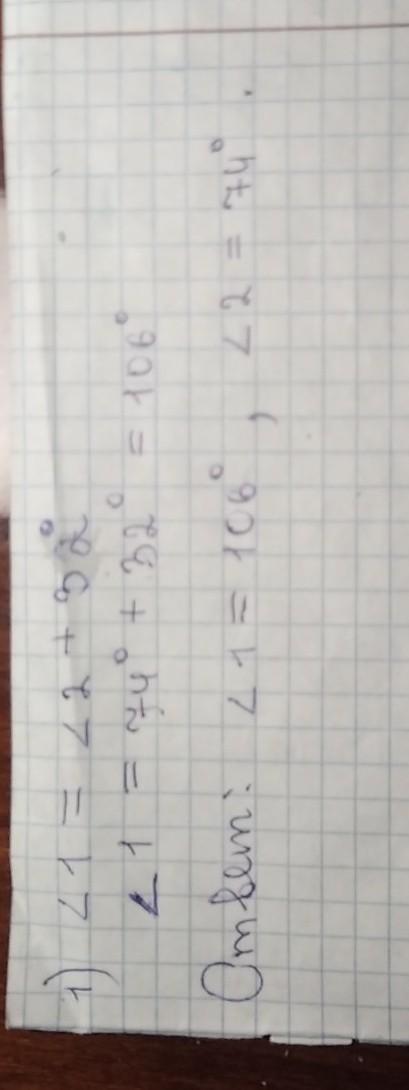 1) ∠1 = ∠2 + 32°
∠1 = 74° + 32° = 106°
Ответ: ∠1 = 106°, ∠2 = 74°.